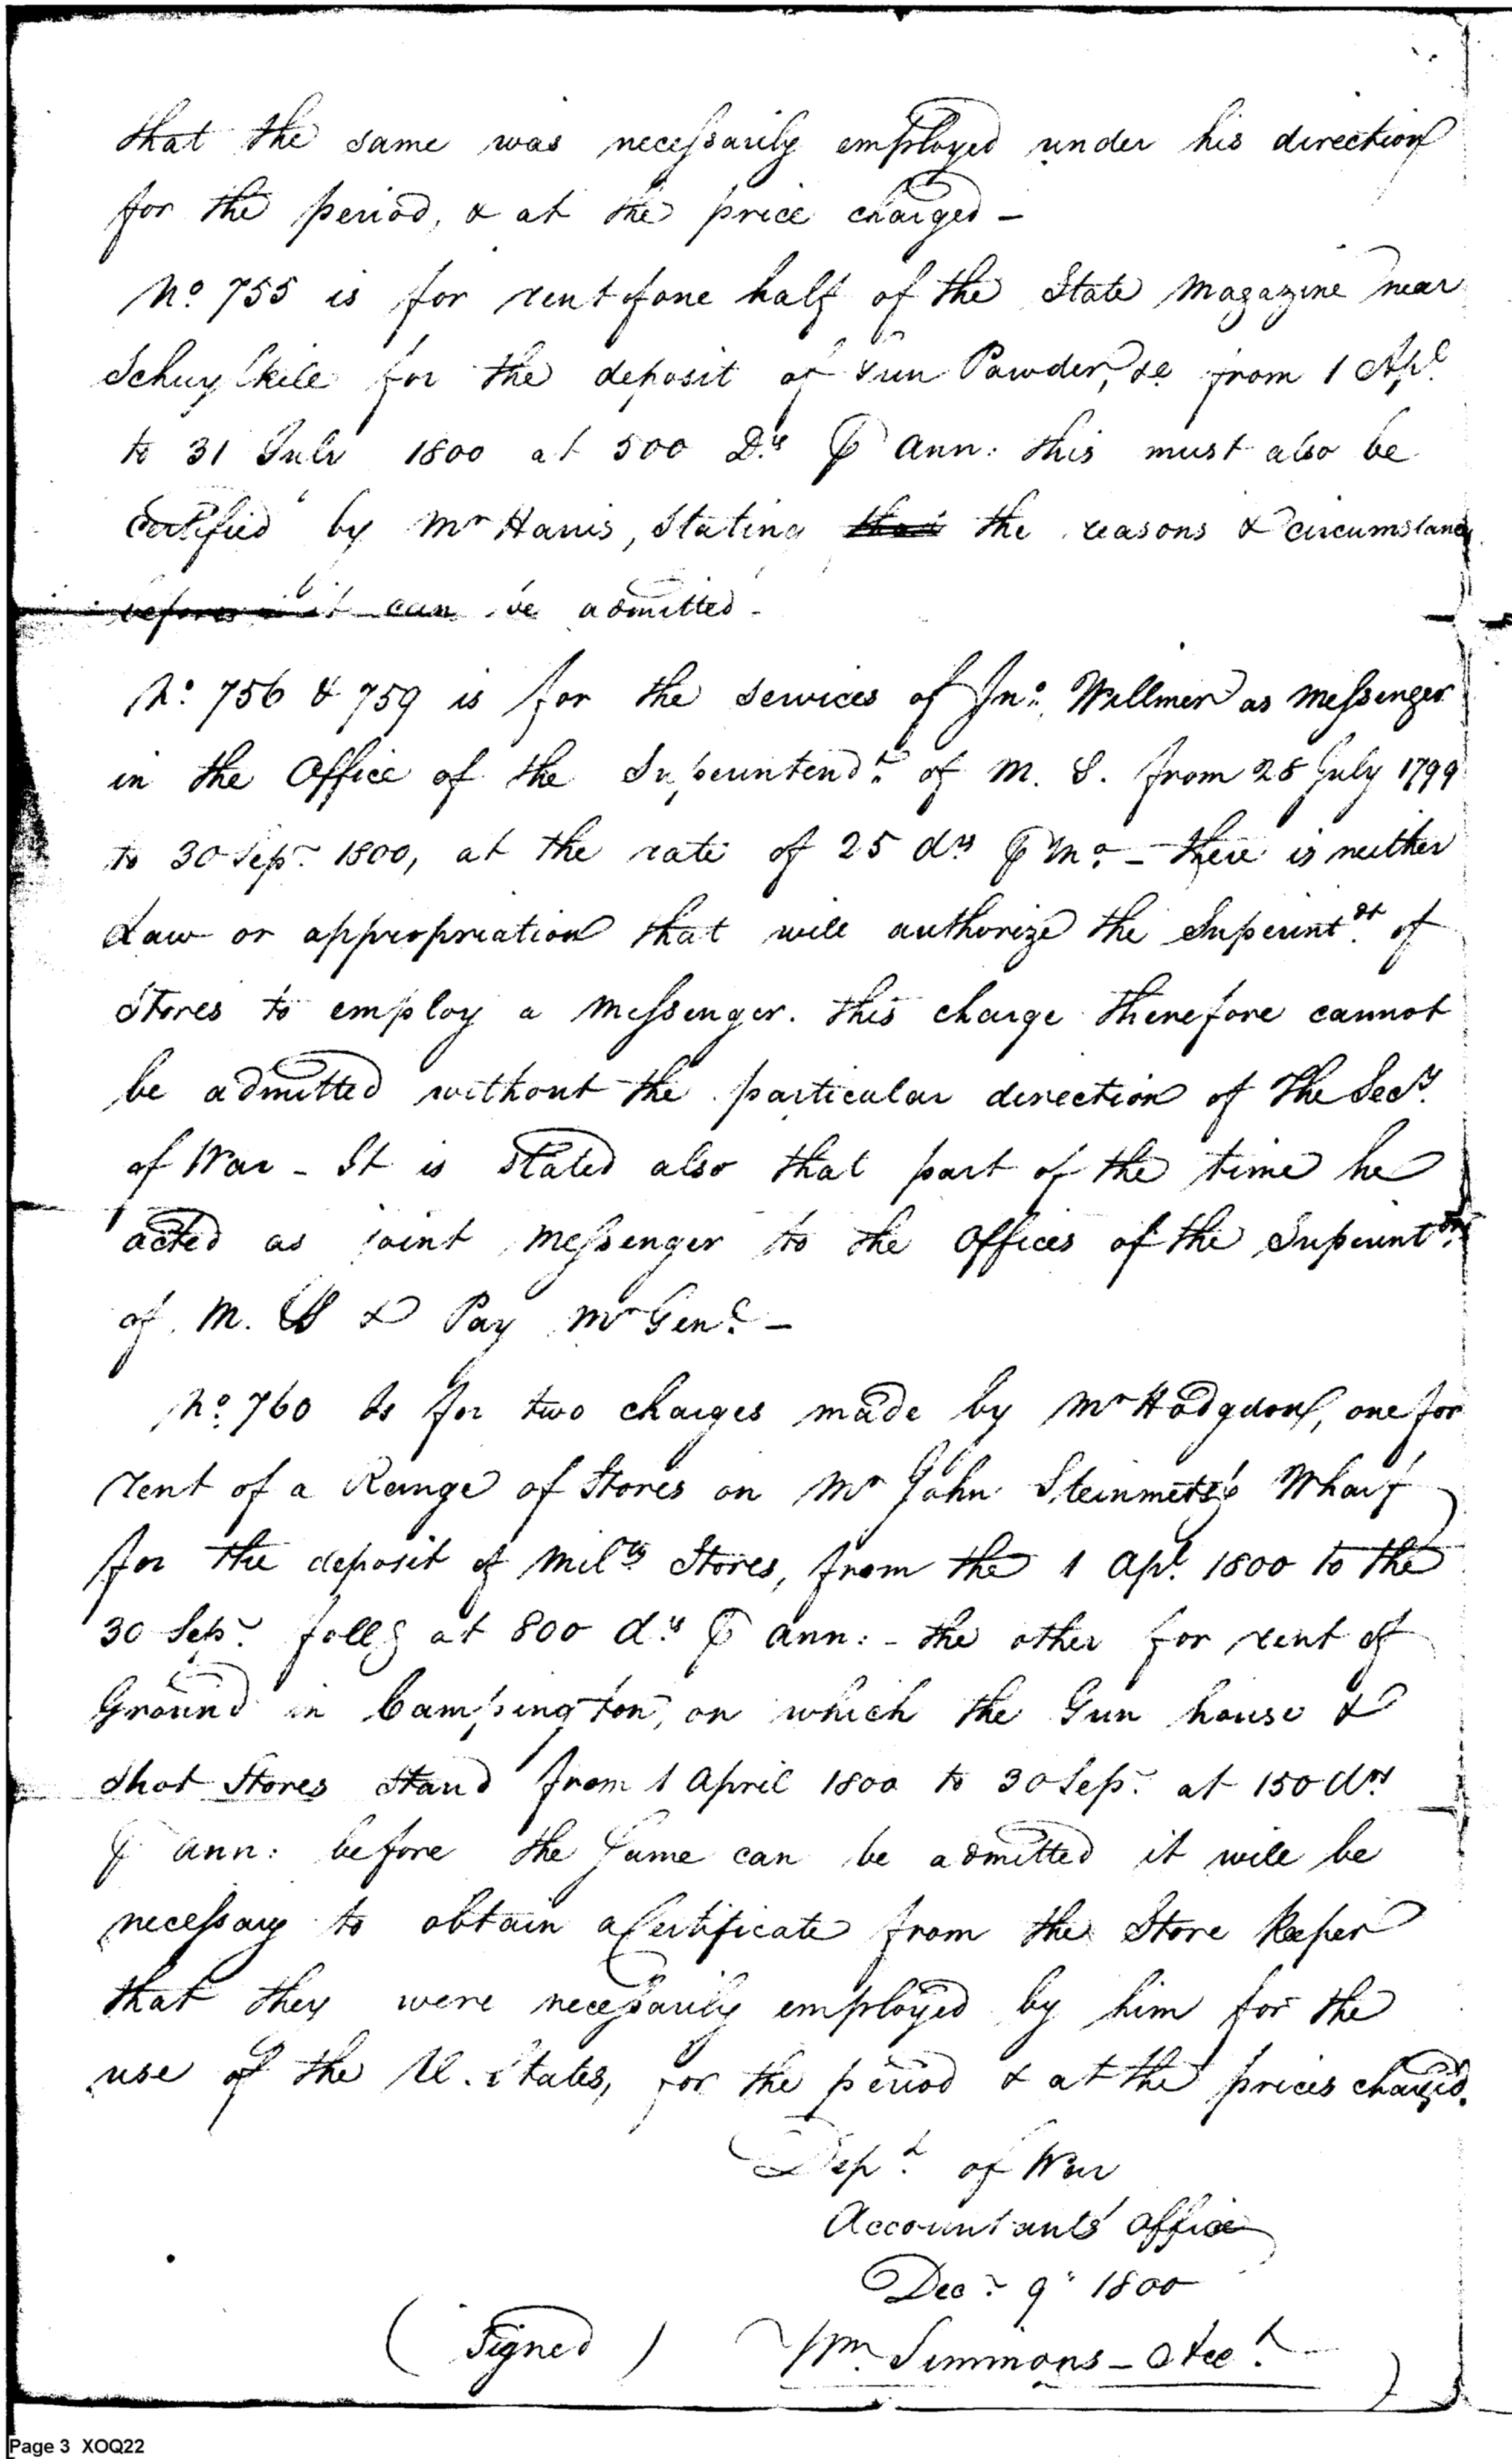 that the same was necessarily employed under his direction
for the period, & at the price charged –
No. 755 is for rent of one half of the State Magazine near
Schuylkill for the deposit of Gun Powder, &c from 1 Apl.
to 31 July 1800 at 500 Drs. ⅌ ann: this must also be
certified by Mr Harris, Stating the reasons & circumstances
before it can be admitted –
No. 756 & 759 is for the services of Jno. Willmer as Messenger
in the Office of the Superintendt. of M. S. from 28 July 1799
to 30 Sepr. 1800, at the rate of 25 drs ⅌ Mo. – there is neither
Law or appropriation that will authorize the Superintdt. of
Stores to employ a Messenger. this charge therefore cannot
be admitted without the particular direction of the Secy.
of War – It is Stated also that part of the time he
acted as joint Messenger to the Offices of the Superintdt.
of M. S & Pay Mr Genl. –
No. 760 Is for two charges made by Mr Hodgdon, one for
rent of a Range of Stores on Mr John Steinmetz's Wharf
for the deposit of Mily Stores, from the 1 Apl. 1800 to the
30 Sepr. follg at 800 drs. ⅌ ann: – the other for rent of
Ground in Campington, on which the Gun house &
Shot Stores Stand from 1 April 1800 to 30 Sepr. at 150 drs
⅌ ann: before the Same can be admitted it will be
necessary to obtain a Certificate from the Store Keeper
that they were necessarily employed by him for the
use of the U. States, for the period & at the prices charged.
Dept. of War
Accountants' Office
Decr. 9. 1800
(Signed) Wm. Simmons – Acct.
Page 3 XOQ22